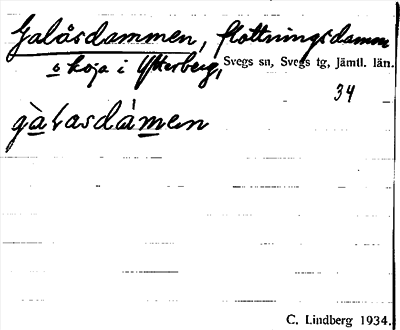 Galåsdammen, flottningsdamm
o koja i Ytterberg, Svegs sn, Svegs tg, Jämtl. län.
34
gàlasdàmen
C. Lindberg 1934.